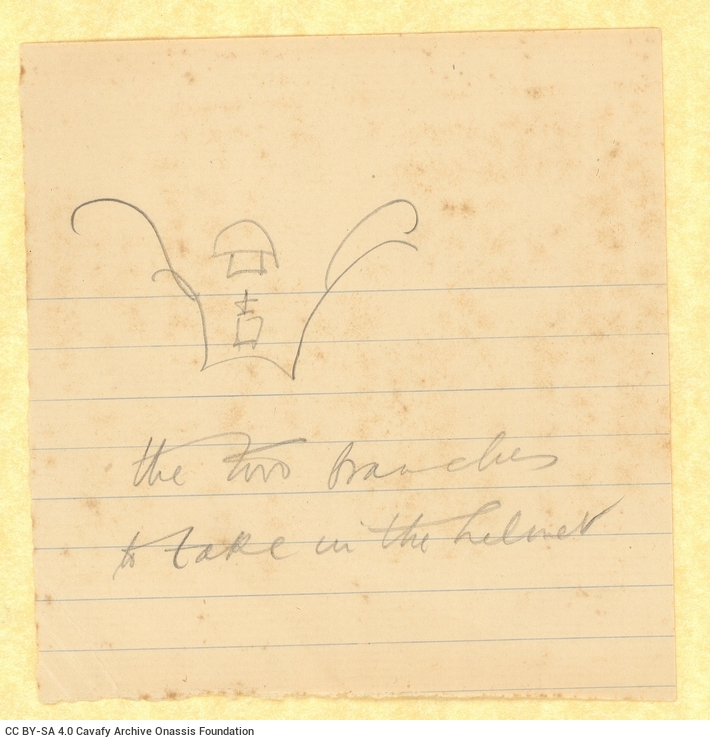 the two branches
to take in the helmet
CC BY-SA 4.0 Cavafy Archive Onassis Foundation